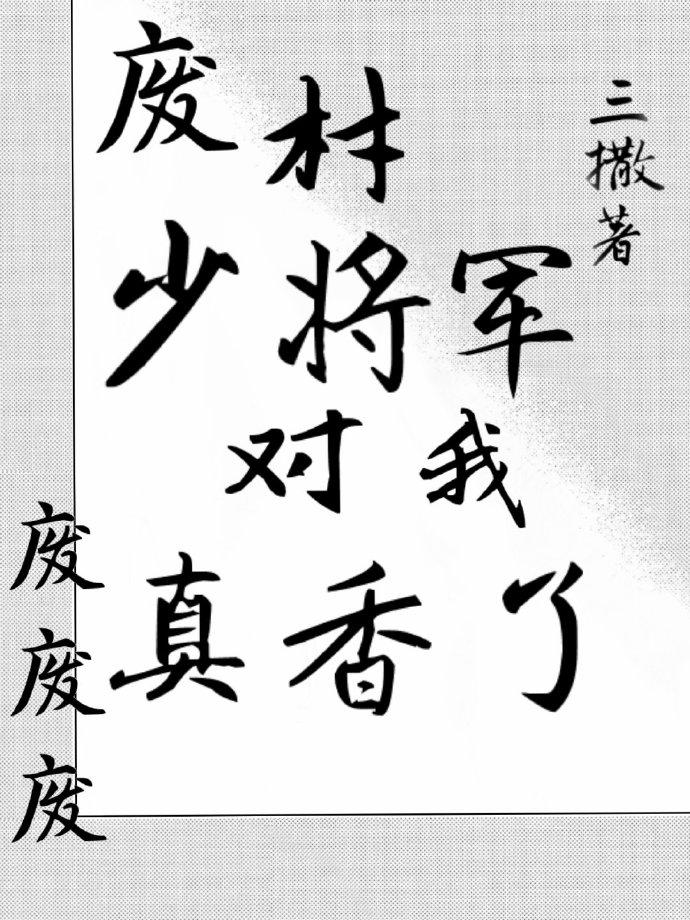 废村
少将军
对我
真香了
三撒著
废
废
废